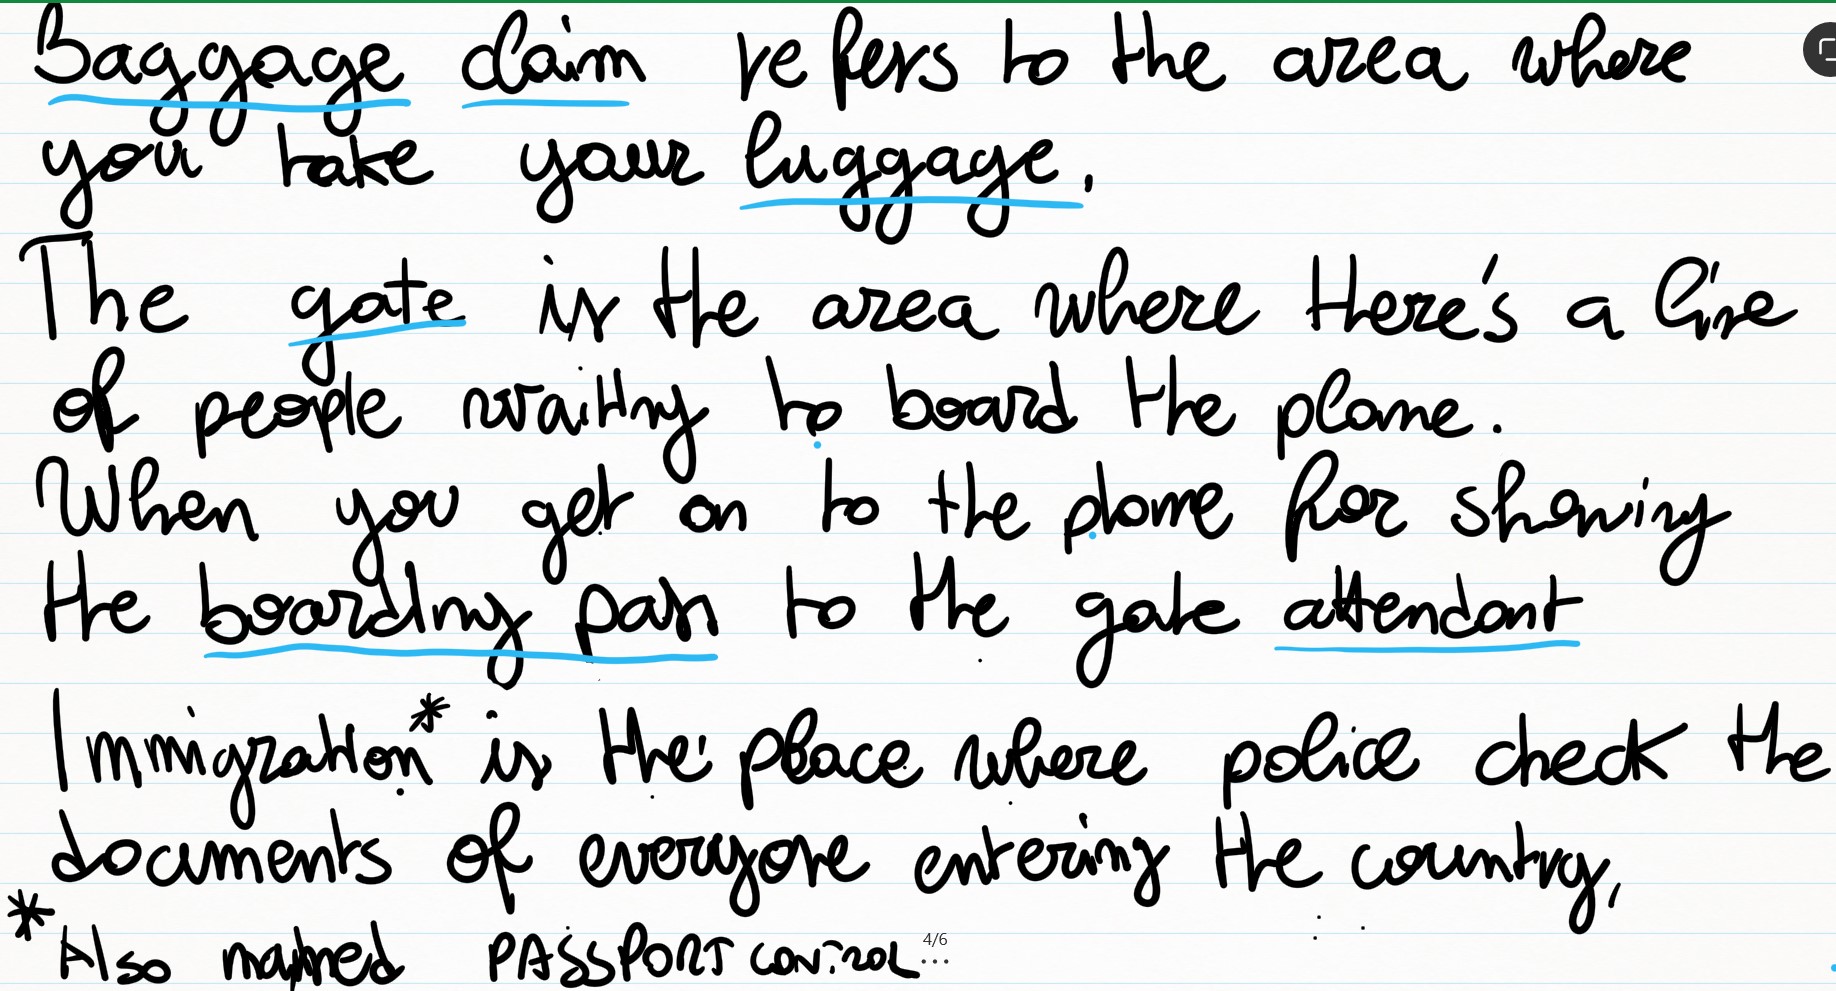 Baggage claim refers to the area where
you take your luggage.
The gate is the area where there's a line
of people waiting to board the plane.
When you get on to the plane for showing
the boarding pass to the gate attendant
Immigration* is the place where police check the
documents of everyone entering the country,
* Also named PASSPORT CONTROL
4/6